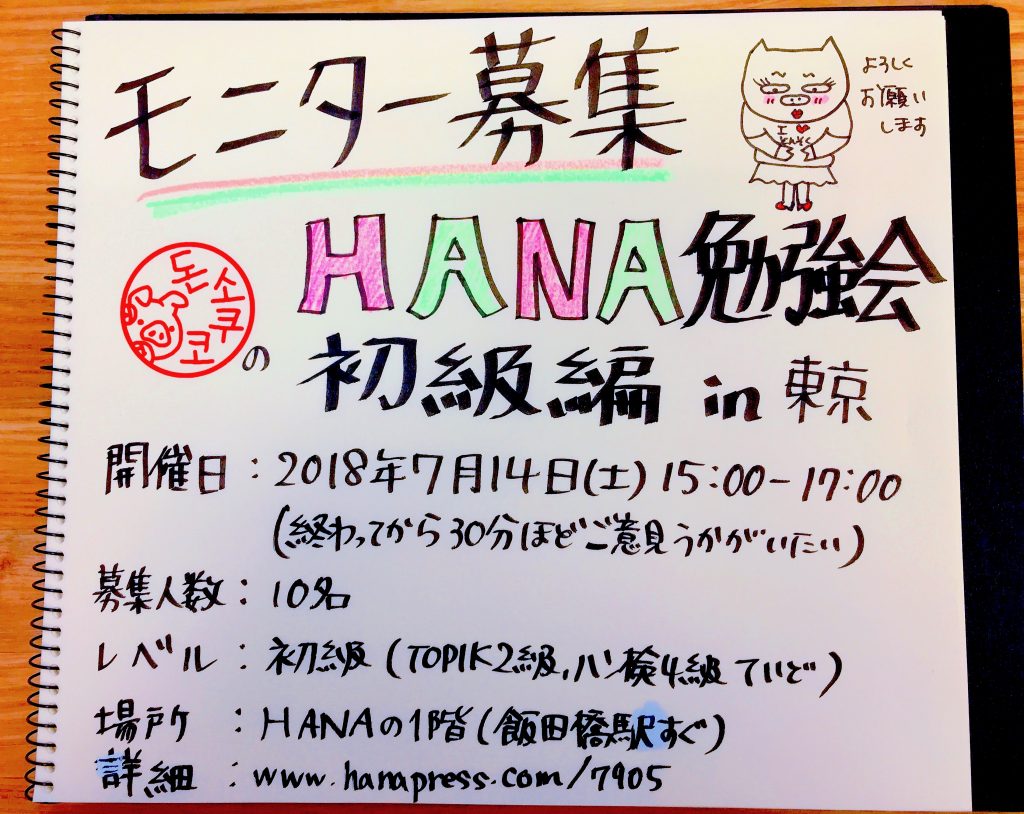 モニター募集
よろしく
お願い
します
I ❤
돈소코쿠の
HANA勉強会
初級編 in 東京
開催日：2018年7月14日(土) 15:00-17:00
(終わってから30分ほどご意見うかがいたい)
募集人数：10名
レベル：初級(TOPIK2級,ハン検4級ていど)
場所：HANAの1階(飯田橋駅すぐ)
詳細：www.hanapress.com/7905